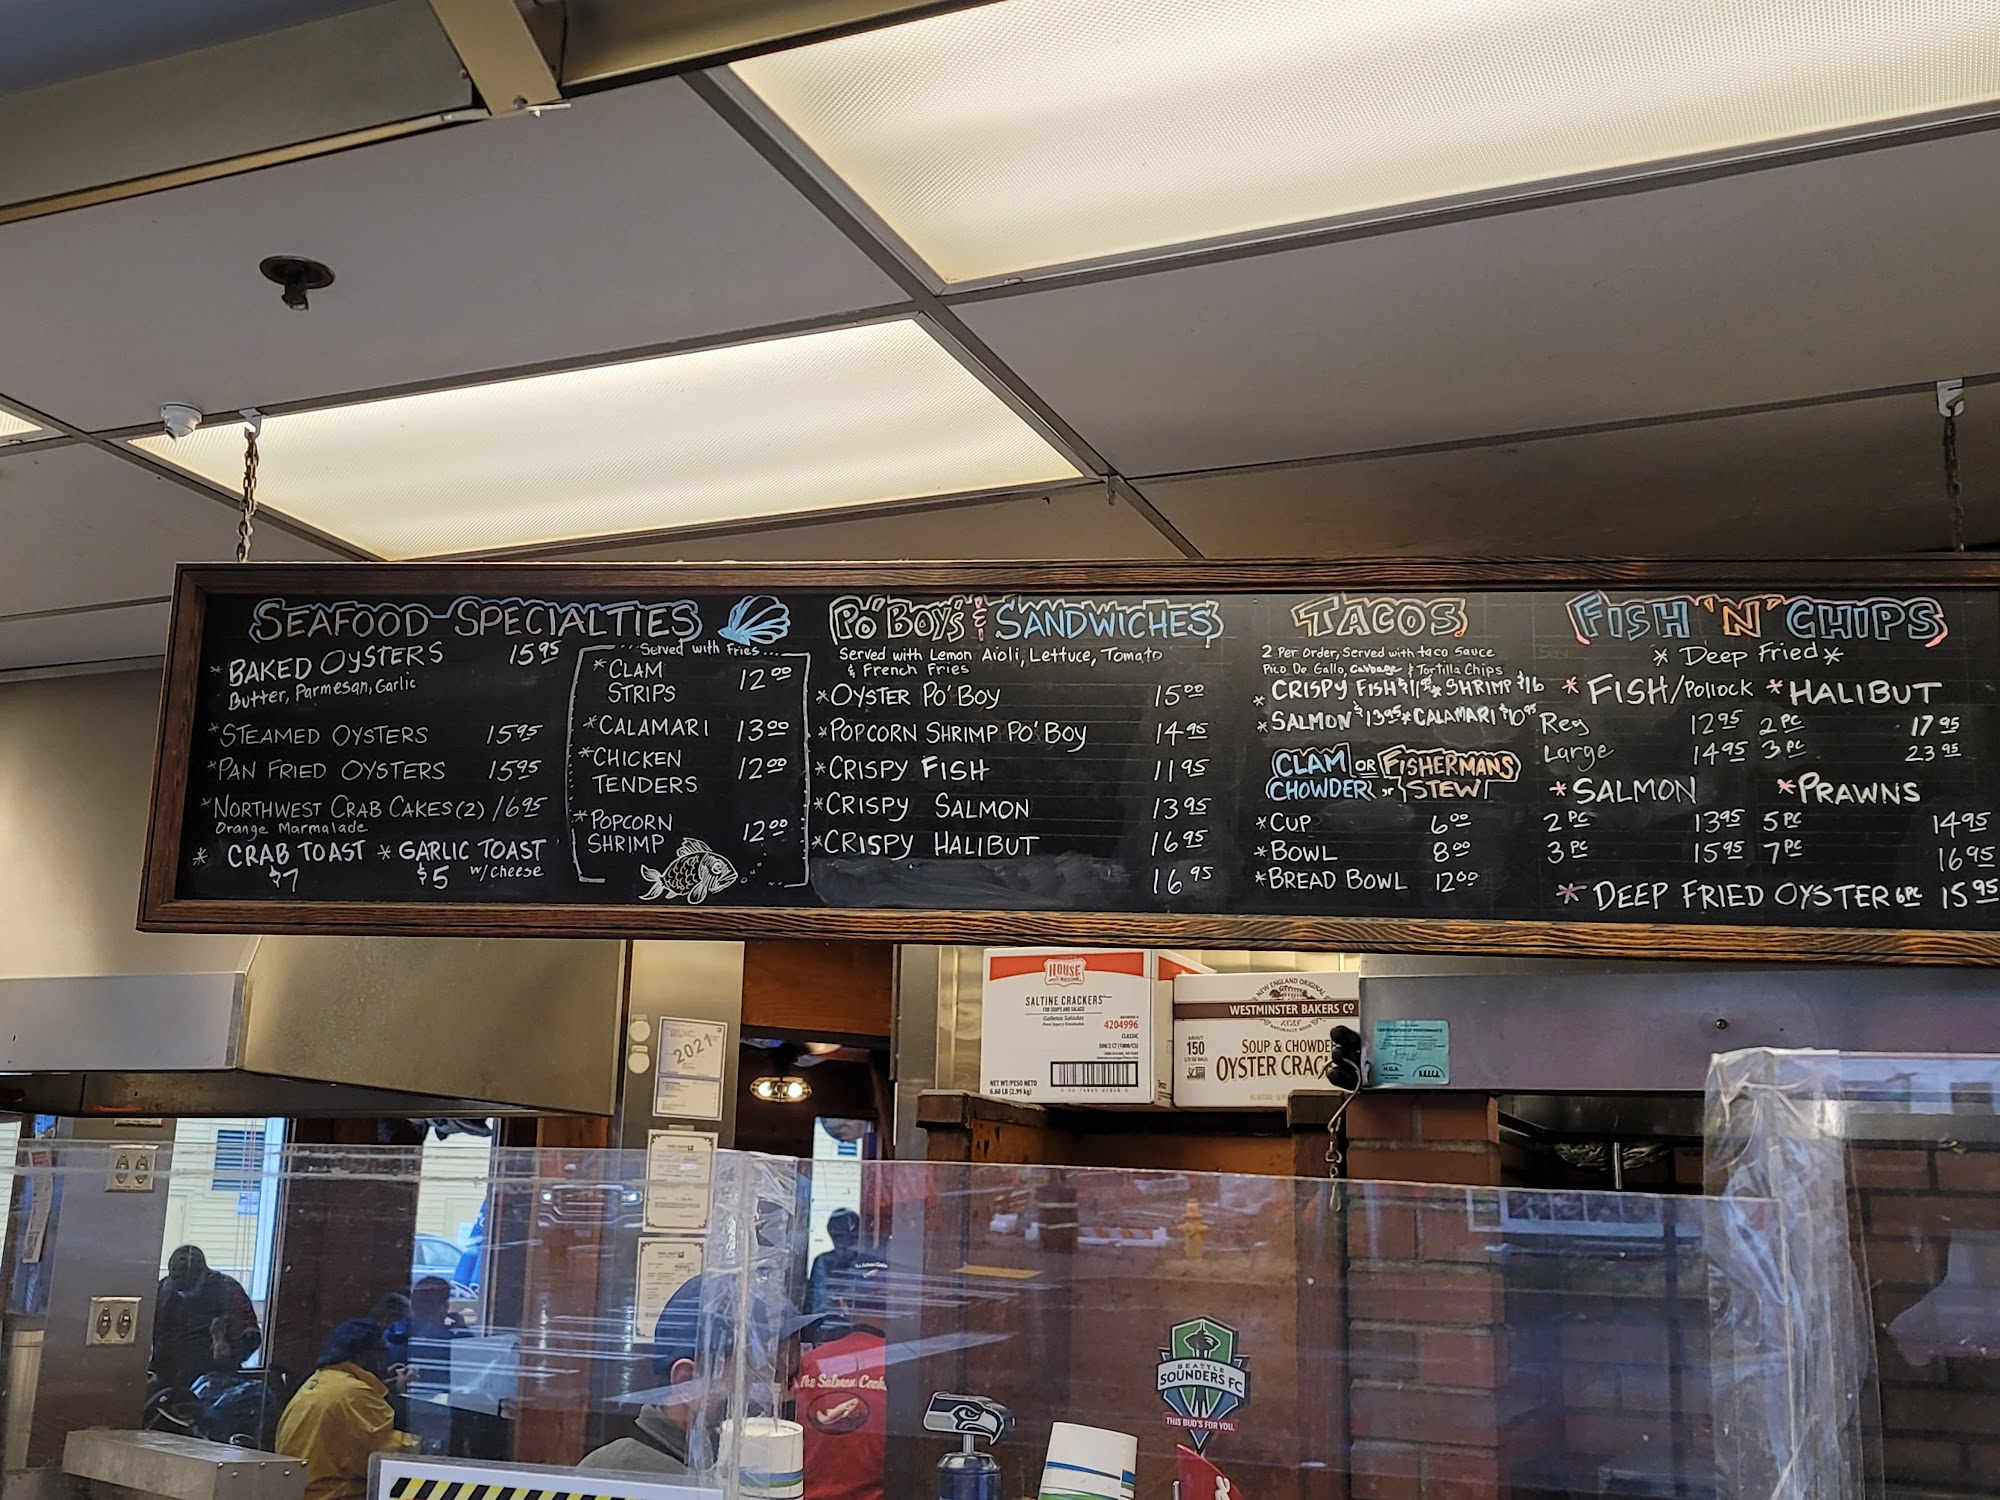 SEAFOOD SPECIALTIES
* BAKED OYSTERS 15.95
Butter, Parmesan, Garlic
* STEAMED OYSTERS 15.95
* PAN FRIED OYSTERS 15.95
* NORTHWEST CRAB CAKES (2) 16.95
Orange Marmalade
* CRAB TOAST * GARLIC TOAST
$7 $5 w/cheese
Served with Fries...
* CLAM STRIPS 12.00
* CALAMARI 13.00
* CHICKEN TENDERS 12.00
* POPCORN SHRIMP 12.00
PO'BOY'S & SANDWICHES
Served with Lemon Aioli, Lettuce, Tomato
& French Fries
* OYSTER PO'BOY 15.00
* POPCORN SHRIMP PO'BOY 14.95
* CRISPY FISH 11.95
* CRISPY SALMON 13.95
* CRISPY HALIBUT 16.95
16.95
TACOS
2 Per Order, Served with taco Sauce
Pico De Gallo, Cabbage & Tortilla Chips
* CRISPY FISH * SHRIMP $16
* SALMON $13.95 * CALAMARI $10.95
CLAM CHOWDER OR FISHERMANS STEW
* CUP 6.00
* BOWL 8.00
* BREAD BOWL 12.00
FISH 'N' CHIPS
* Deep Fried *
* FISH/Pollock * HALIBUT
Reg 12.95 2 PC 17.95
Large 14.95 3 PC 23.95
* SALMON * PRAWNS
2 PC 13.95 5 PC 14.95
3 PC 15.95 7 PC 16.95
* DEEP FRIED OYSTER 6PC 15.95
HOUSE
SALTINE CRACKERS
FOR SOUPS AND SALADS
Galletas Saladas
4204996
CLASSIC
NET WT/PESO NETO
6.60 LB (2.99 kg)
NEW ENGLAND ORIGINAL
WESTMINSTER BAKERS CO
1828
ABOUT
150
SOUP & CHOWDE
OYSTER CRAC
2021
The Salmon Cook
SEATTLE
SOUNDERS FC
THIS BUD'S FOR YOU.